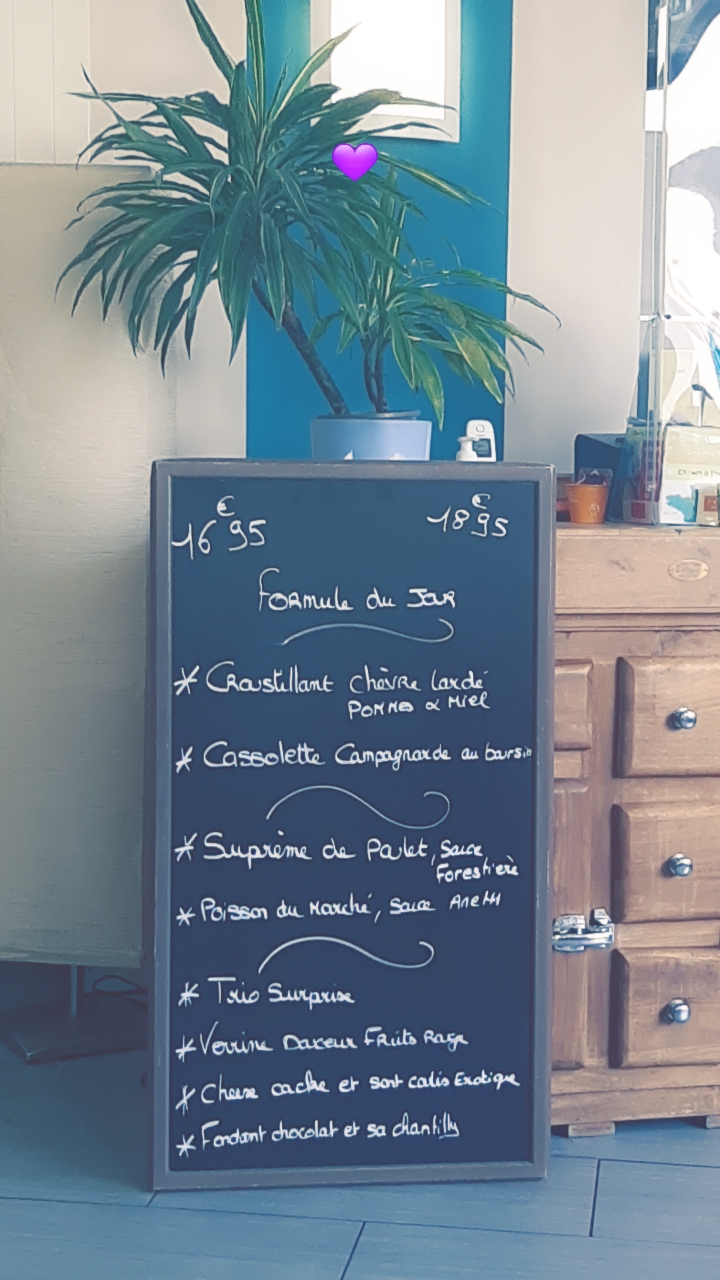 16€95 18€95
Formule du Jour
* Croustillant chèvre lardé
Pomme & Miel
* Cassolette Campagnarde au boursin
* Suprême de Poulet, Sauce
Forestière
* Poisson du Marché, Sauce Aneth
* Trio Surprise
* Verrine Douceur Fruits Rouge
* Cheese cacke et son coulis Exotique
* Fondant chocolat et sa chantilly